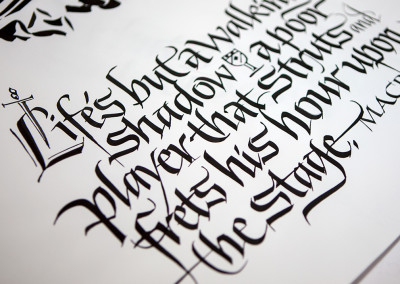 Life's but a walking
shadow, a poor
player that struts and
frets his hour upon
the stage,
MACB